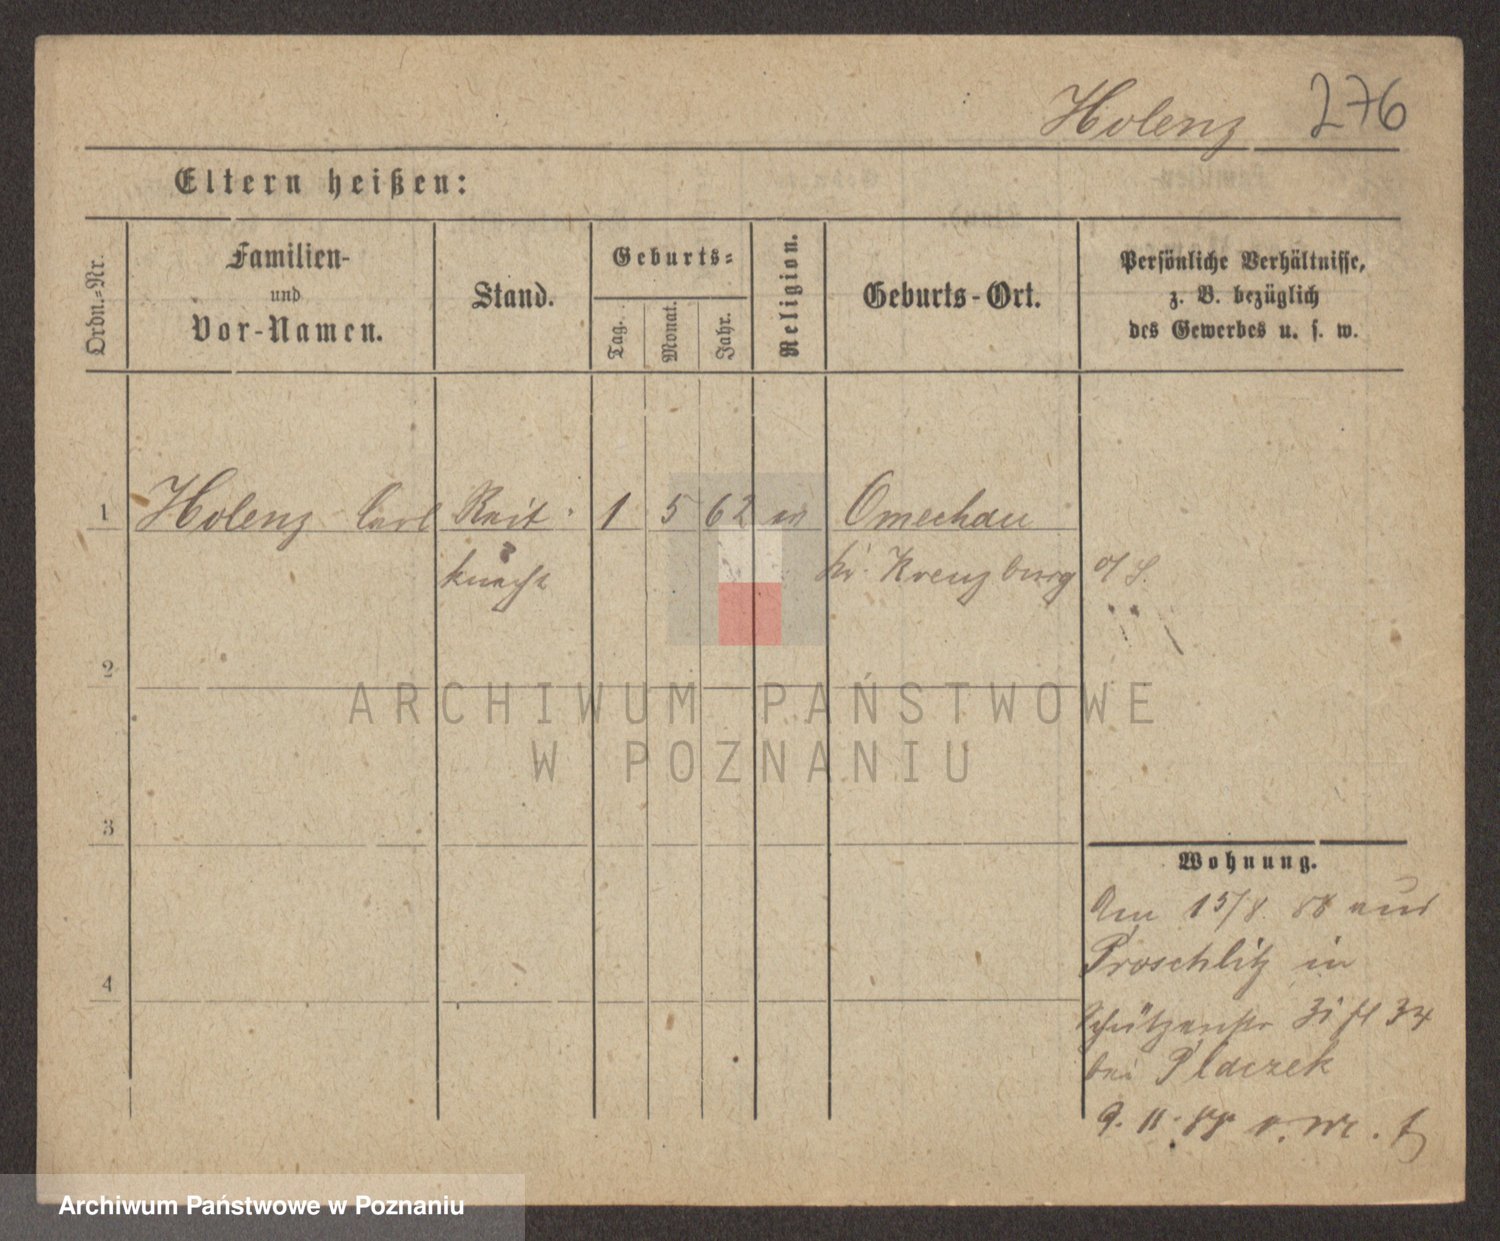 Holenz 276
Eltern heißen:
Ordn.-Nr.
Familien-
und
Vor-Namen.
Stand.
Geburts-
Tag.
Monat.
Jahr.
Religion.
Geburts-Ort.
Persönliche Verhältnisse,
z. B. bezüglich
des Gewerbes u. s. w.
1 Holenz Carl Reit 1 5 62 Omechau
knecht Kr. Kreuzburg o/S.
2
3
4
Wohnung.
Am 15/8. 88 aus
Proschlitz in
Schützenstr 34
bei Placzek
9. 11. 88
ARCHIWUM PAŃSTWOWE
W POZNANIU
Archiwum Państwowe w Poznaniu